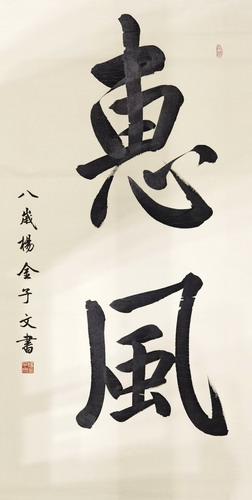 惠風
八歲楊金子文書